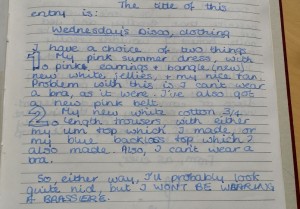 The title of this
entry is:
Wednesday's Disco, clothing
I have a choice of two things
1 My pink summer dress with
pink earrings + bangle (new)
new white jellies, + my nice tan.
Problem with this is I can't wear
a bra, as it were. I've also got
a new pink belt.
2 My new white cotton 3/4
length trousers with either
my um top which I made, or
my blue backless top which I
also made. Also, I can't wear a
bra.
So, either way, I'll probably look
quite nid, but I WON'T BE WEARING
A BRASSIERE.